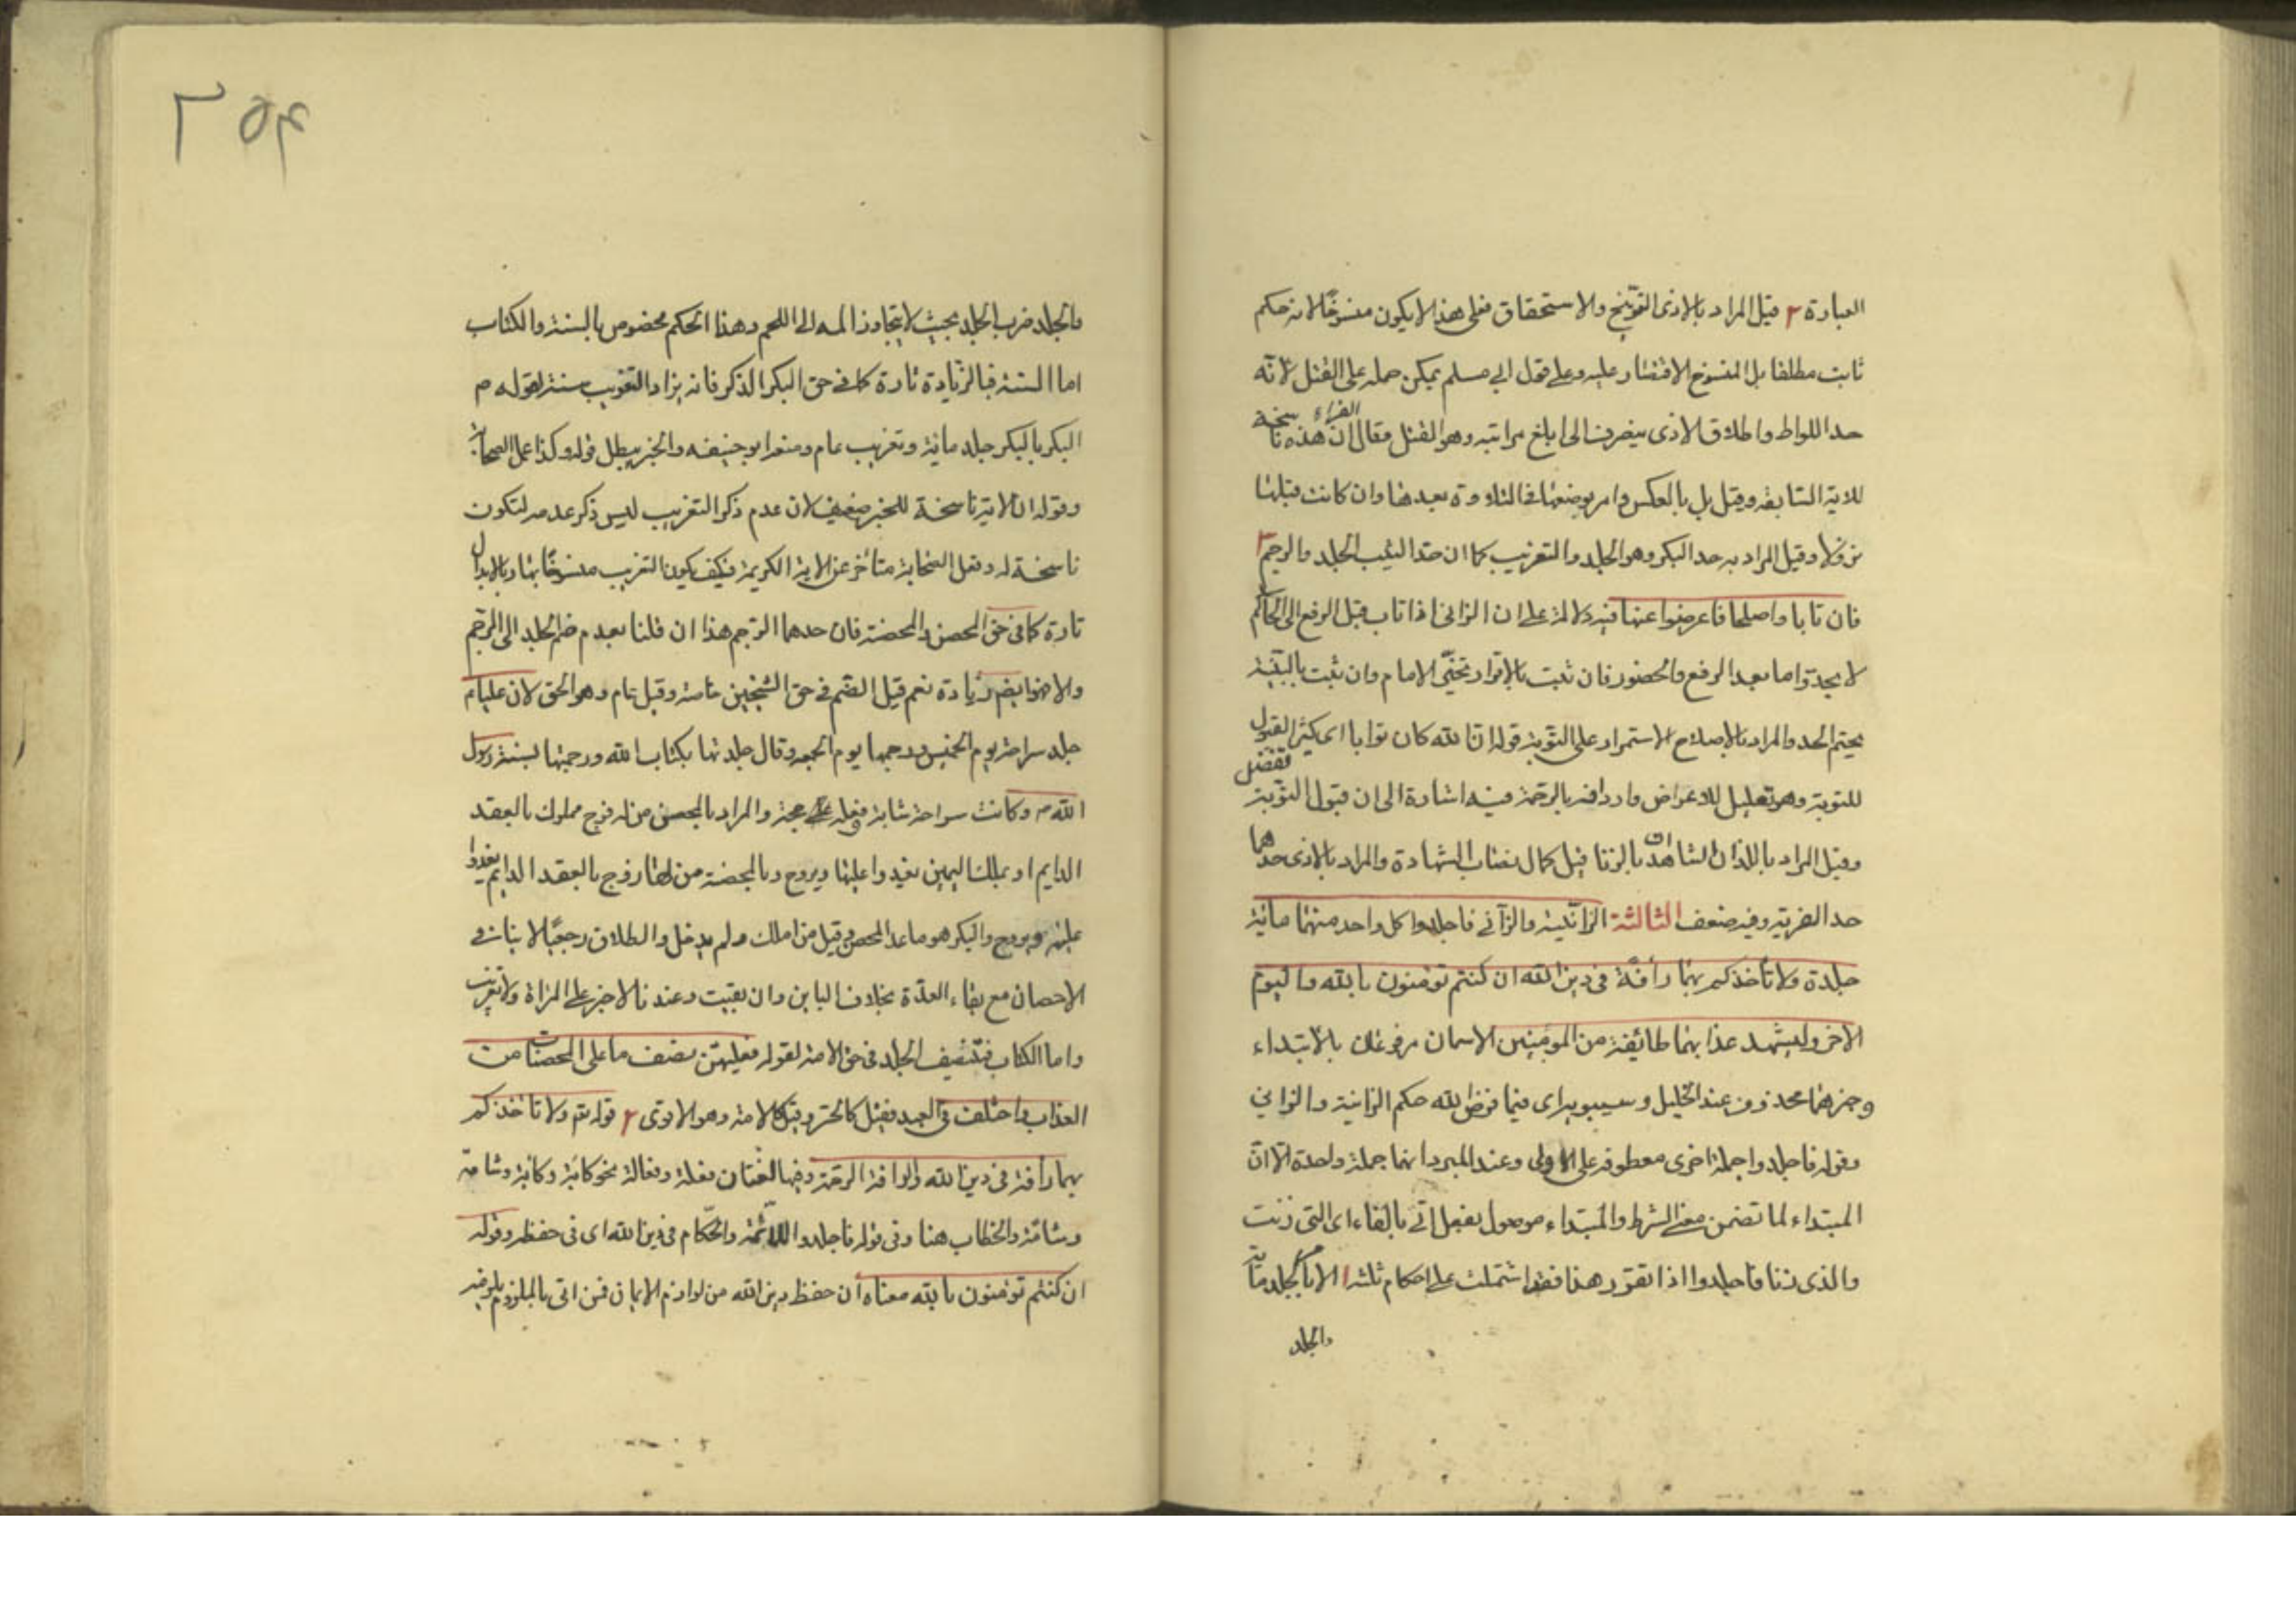 العبارة ٢ قيل المراد بالاذى التوبيخ والاستحقاق فعلى هذا لا يكون منسوخًا لانه حكم
ثابت مطلقا بل المنسوخ الاقتصار عليه وعلى قول ابي مسلم يمكن حمله على القتل لانّه
حد اللواط واطلاق الاذى ينصرف الى ابلغ مراتبه وهو القتل وقال الفراء ان هذه ناسخة
للاية السابقه وقيل بل بالعكس وامر بوضعها فى التلاوة بعدها وان كانت قبلها
نزولا وقيل المراد به حد البكر وهو الجلد والتغريب كما ان حد الثيب الجلد والرجم ٣
فان تابا واصلحا فاعرضوا عنهما فيه دلالة على ان الزانى اذا تاب قبل الرفع الى الحاكم
لا يحد واما بعد الرفع والحضور فان ثبت بالاقرار تخيّر الامام وان ثبت بالبيّنة
يحتم الحد والمراد بالاصلاح الاستمرار على التوبة قوله ان الله كان توابا اى كثير القبول
للتوبة وهو تعليل للاعراض واردافه بالرحمة فيه اشارة الى ان قبول التوبة تفضل
وقيل المراد باللذان الشاهدان بالزنا قبل كمال نصاب الشهادة والمراد بالاذى حدهما
حد الفرية وفيه ضعف الثالثة الزانية والزآنى فاجلدوا كل واحد منهما مائة
جلدة ولا تأخذكم بهما رأفة فى دين الله ان كنتم تؤمنون بالله واليوم
الاخر وليشهد عذابهما طائفة من المؤمنين الاسمان مرفوعان بالابتداء
وخبرهما محذوف عند الخليل وسيبويه اى فيما فرض الله حكم الزانية والزاني
وقوله فاجلدوا جملة اخرى معطوفه على الاولى وعند المبرد انهما جملة واحدة الّا انّ
المبتداء لما تضمن معنى الشرط والمبتداء موصول بفعل اتى بالفاء اى التى زنت
والذى زنا فاجلدوا اذا تقرر هذا فقد اشتملت على احكام ثلثه ١ الامر بجلد مائة
والجلد
٢٥٤
والجلد ضرب الجلد بحيث لا يتجاوز المه الى اللحم وهذا الحكم مخصوص بالسنة والكتاب
اما السنة فبالزيادة تارة كما فى حق البكر الذكر فانه يزاد التغريب سنة لقوله م
البكر بالبكر جلد مائة وتغريب عام ومنع ابو حنيفه والخبر يبطل قوله وكذا عمل الصحابة
وقوله ان الاية ناسخة للخبر ضعيف لان عدم ذكر التغريب ليس ذكر عدمه لتكون
ناسخة له وفعل الصحابة متأخر عن الاية الكريمة فكيف يكون التغريب منسوخًا بها وبالابدال
تارة كما فى حق المحصن والمحصنة فان حدهما الرجم هذا ان قلنا بعدم ضم الجلد الى الرجم
والا فهو ايضا زيادة نعم قيل الضم فى حق الشيخين خاصة وقيل عام وهو الحق لان عليا م
جلد سراحة يوم الخميس ورجمها يوم الجمعه وقال جلدتها بكتاب الله ورجمتها بسنة رسول
الله ص وكانت سراحة شابة وفعله ع حجة والمراد بالمحصن من له فرج مملوك بالعقد
الدايم او بملك اليمين يغدوا عليها ويروح وبالمحصنة من لها زوج بالعقد الدايم يغدوا
عليها ويروح والبكر هو ما عدا المحصن وقيل من املك ولم يدخل والطلاق رجعيًا لا ينافى
الاحصان مع بقاء العدّة بخلاف الباين وان بقيت وعندنا لا جز على المراة ولا تغريب
واما الكتاب فتنصيف الجلد فى حق الامة لقوله فعليهن نصف ما على المحصنات من
العذاب واختلف فى العبد فقيل كالحر وقيل كالامة وهو الاقوى ٢ قوله تم ولا تاخذكم
بهما رأفة فى دين الله والرافة الرحمة وفيها لغتان فعلة وفعالة نحو كآبة وكابة وشامة
وشامة والخطاب هنا وفى قوله فاجلدوا للائمة والحكام فى دين الله اى فى حفظه وقوله
ان كنتم تؤمنون بالله معناه ان حفظ دين الله من لوازم الايمان فمن اتى بالملزوم يلزمه